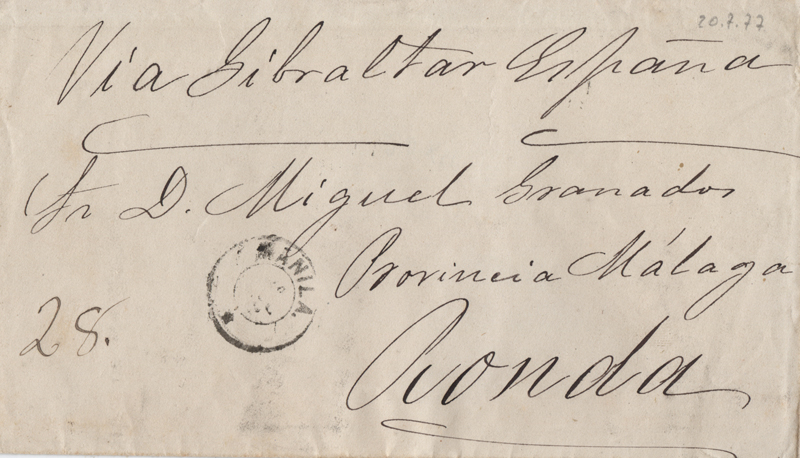 20.7.77
Via Gibraltar España
Sr D. Miguel Granados
MANILA
Provincia Málaga
28.
Ronda